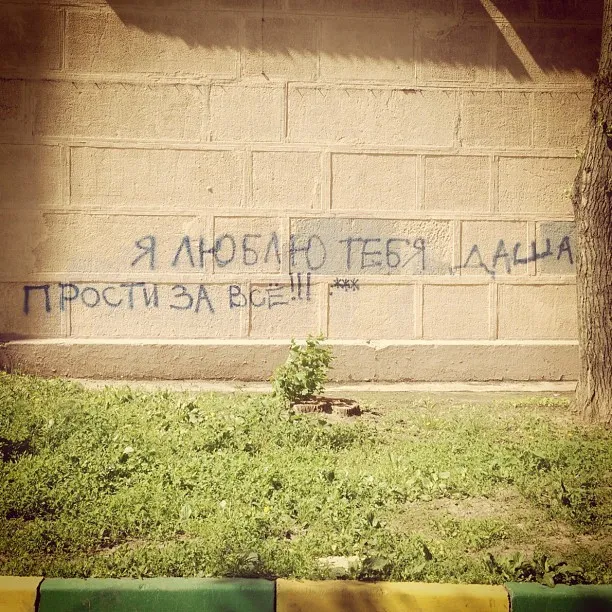 Я ЛЮБЛЮ ТЕБЯ, ДАША
ПРОСТИ ЗА ВСЁ!!! :***